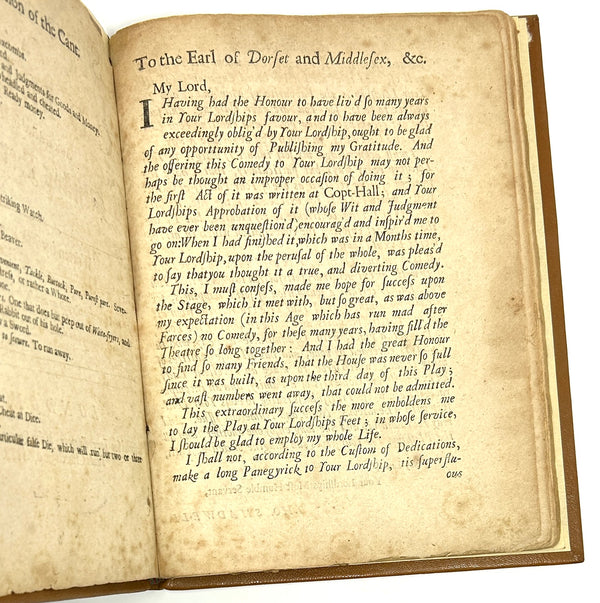 ion of the Cant.
and Judgments for Goods and Money.
headled and cheated.
Ready money.
triking Watch.
Beaver.
Tackle, Buttock, Pure, Purest pure.
tress, or rather a Whore.
One that does but peep out of White-fryers, and
Rabbit out of his hole.
a Sword.
to scowre. To run away.
Cheat at Dice.
articular false Die, which will run but two or three
To the Earl of Dorſet and Middleſex, &c.
My Lord,
I Having had the Honour to have liv'd ſo many years
in Your Lordſhips favour, and to have been always
exceedingly oblig'd by Your Lordſhip, ought to be glad
of any opporttunity of Publiſhing my Gratitude. And
the offering this Comedy to Your Lordſhip may not per-
haps be thought an improper occaſion of doing it; for
the firſt Act of it was written at Copt-Hall; and Your
Lordſhips Approbation of it (whoſe Wit and Judgment
have ever been unqueſtion'd, encourag'd and inſpir'd me to
go on: When I had finiſhed it, which was in a Months time,
Your Lordſhip, upon the peruſal of the whole, was pleas'd
to ſay that you thought it a true, and diverting Comedy.
This, I muſt confeſs, made me hope for ſucceſs upon
the Stage, which it met with, but ſo great, as was above
my expectation (in this Age which has run mad after
Farces) no Comedy, for theſe many years, having fill'd the
Theatre ſo long together: And I had the great Honour
to find ſo many Friends, that the Houſe was never ſo full
ſince it was built, as upon the third day of this Play;
and vaſt numbers went away, that could not be admitted.
This extraordinary ſucceſs the more emboldens me
to lay the Play at Your Lordſhips Feet; in whoſe ſervice,
I ſhould be glad to employ my whole Life.
I ſhall not, according to the Cuſtom of Dedications,
make a long Panegyrick to Your Lordſhip, tis ſuperflu-
ous